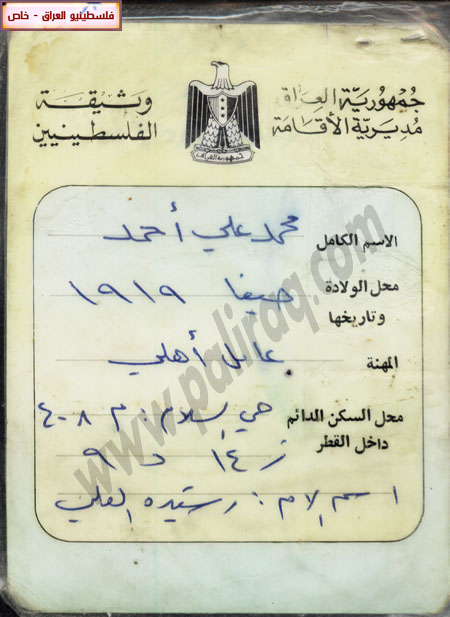 فلسطينيو العراق - خاص
جمهورية العراق
مديرية الأقامة
وثيقة
الفلسطينيين
جمهورية العراق
الاسم الكامل محمد علي أحمد
محل الولادة وتاريخها حيفا ١٩١٩
المهنة عامل أهلي
محل السكن الدائم داخل القطر حي السلام : م ٤٠٨
ز ١٤ د ٩
اسم الام : رشيده العلي
www.paliraq.com